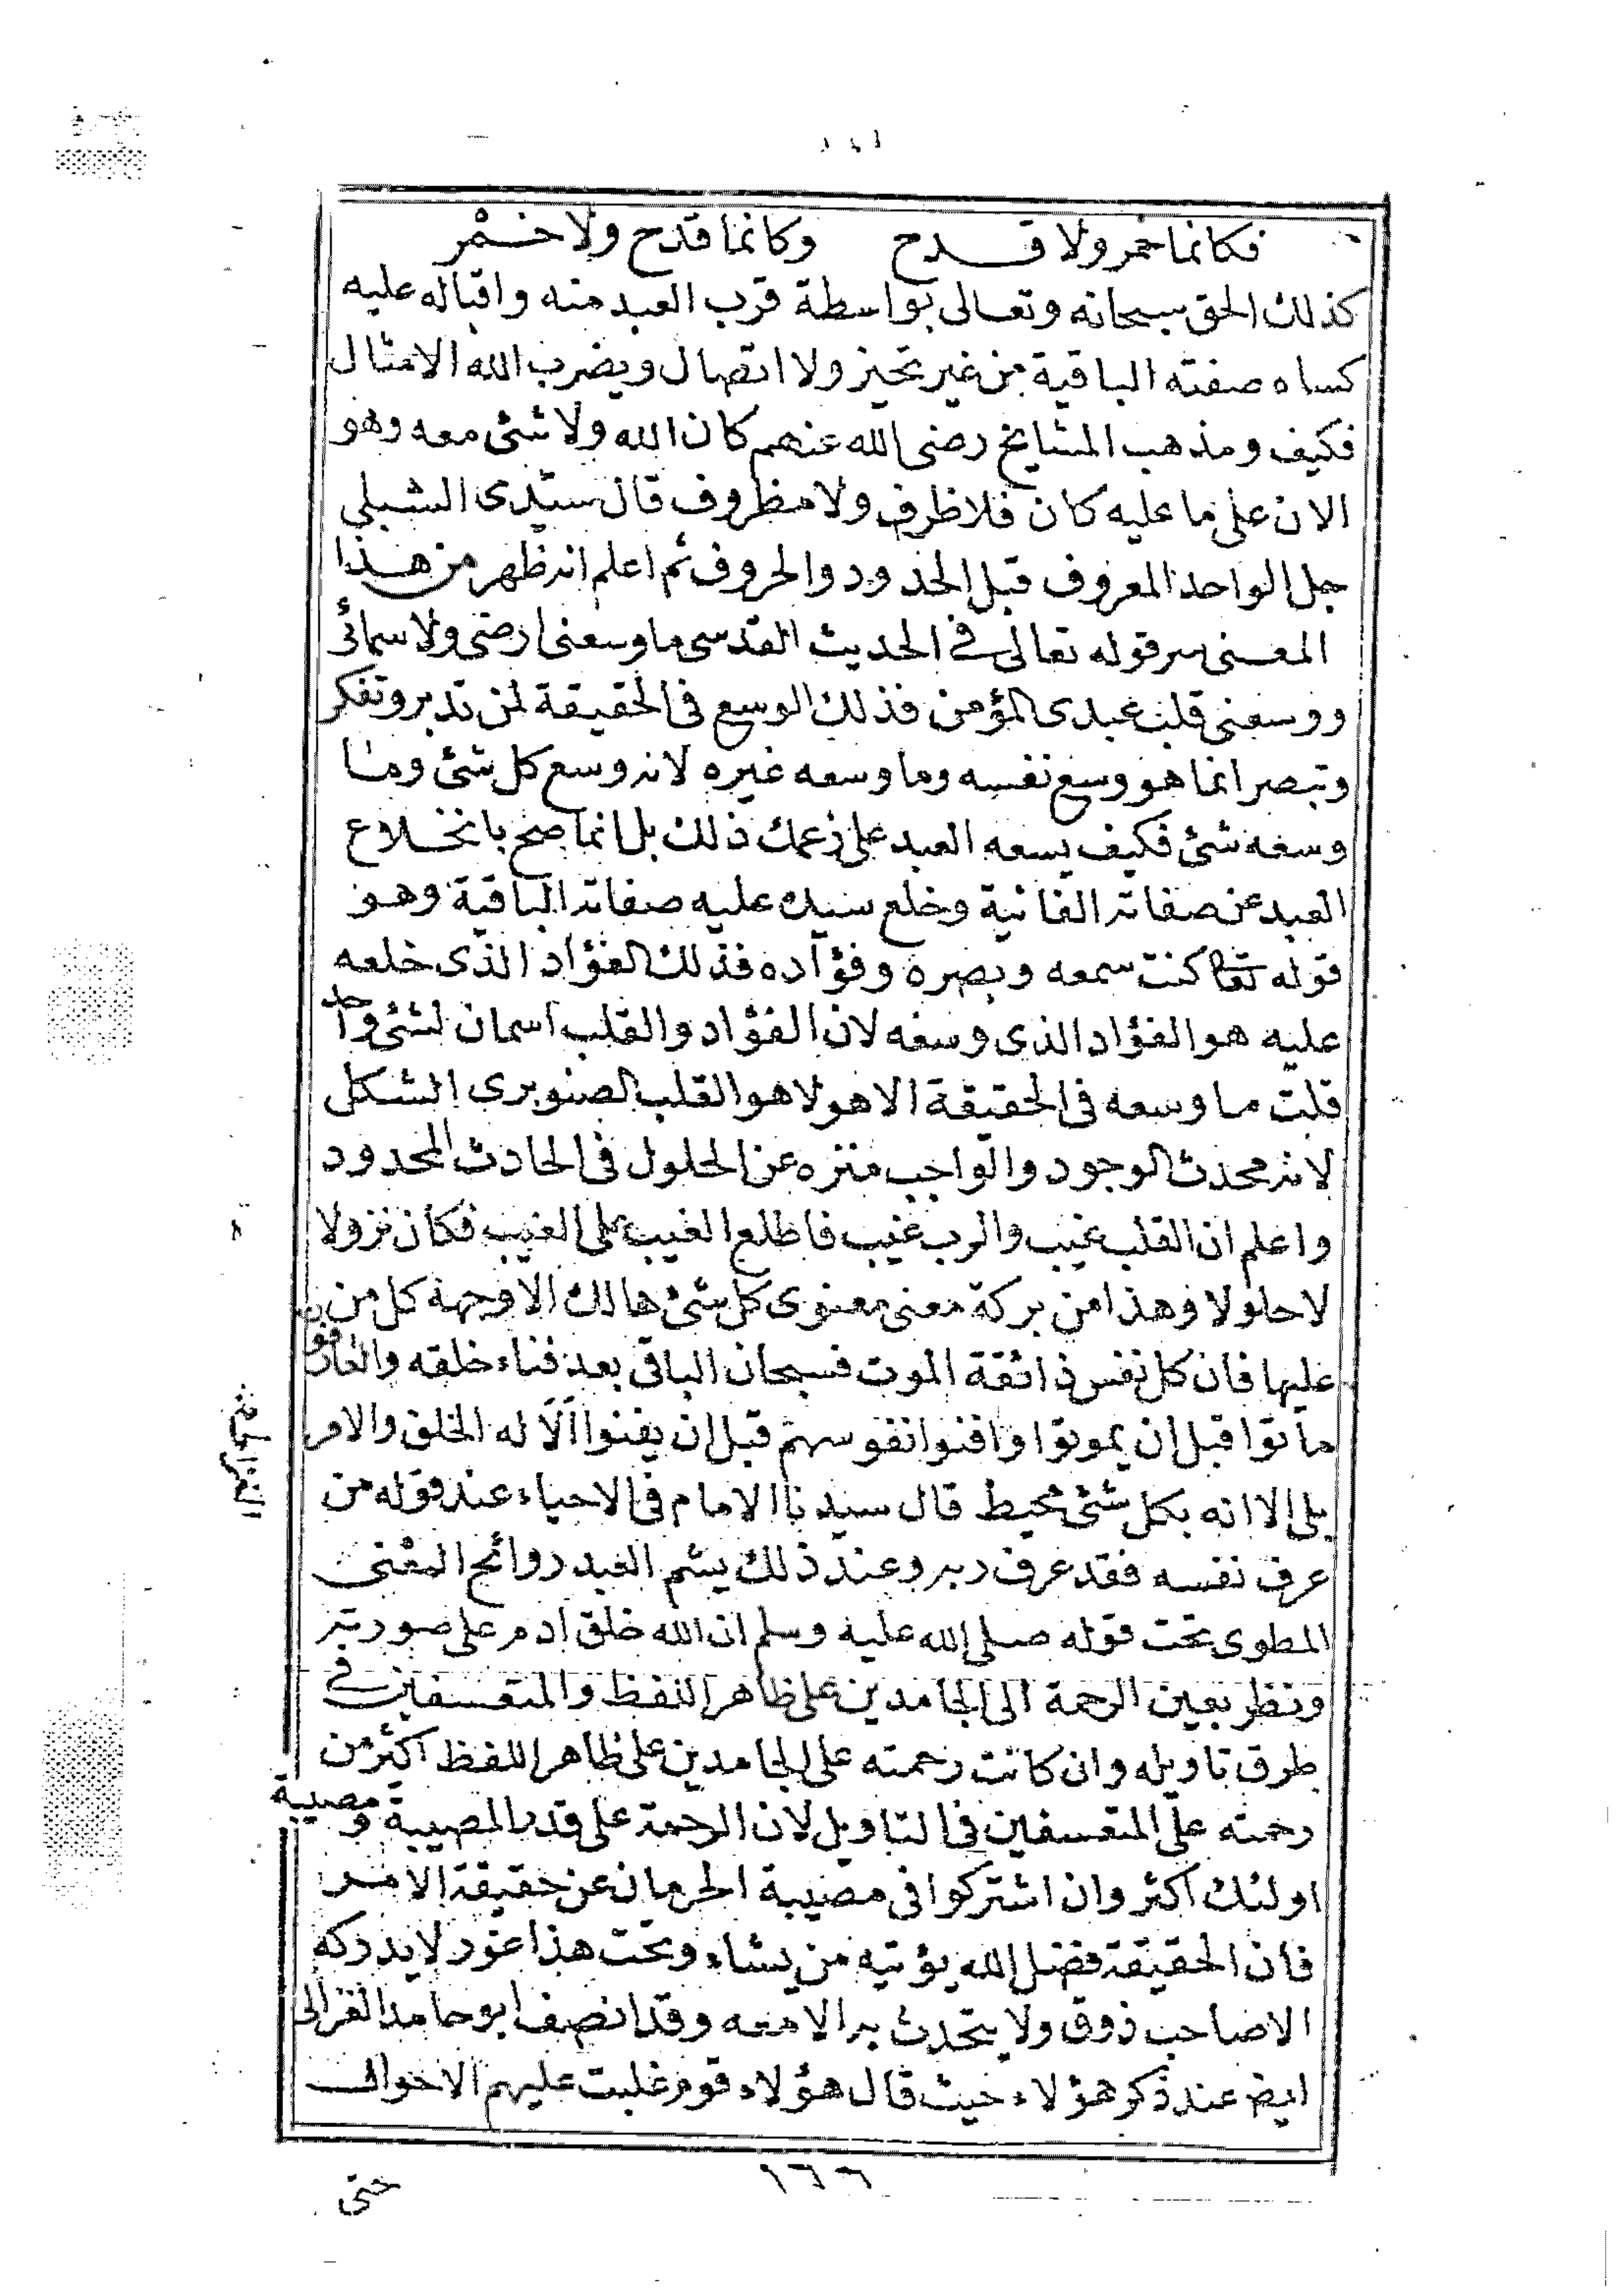 فكانما خمر ولا قدح وكانما قدح ولا خمر
كذلك الحق سبحانه وتعالى بواسطة قرب العبد منه واقباله عليه
كساه صفته الباقية من غير تحيز ولا اتصال ويضرب الله الامثال
فكيف ومذهب المشايخ رضى الله عنهم كان الله ولا شئ معه وهو
الان على ما عليه كان فلا ظرف ولا مظروف قال سيدى الشبلي
جل الواحد المعروف قبل الحدود والحروف ثم اعلم انه ظهر من هذا
المعنى سر قوله تعالى فى الحديث القدسى ما وسعنى ارضى ولا سمائى
ووسعنى قلب عبدى المؤمن فذلك الوسع فى الحقيقة لمن تدبر وتفكر
وتبصر انما هو وسع نفسه وما وسعه غيره لانه وسع كل شئ وما
وسعه شئ فكيف يسعه العبد على زعمك ذلك بل انما صح بانخلاع
العبد عن صفاته الفانية وخلع سيده عليه صفاته الباقية وهو
قوله تعا كنت سمعه وبصره وفؤاده فذلك الفؤاد الذى خلعه
عليه هو الفؤاد الذى وسعه لان الفؤاد والقلب اسمان لشئ واحد
قلت ما وسعه فى الحقيقة الا هو لا هو القلب الصنوبرى الشكل
لانه محدث الوجود والواجب منزه عن الحلول فى الحادث المحدود
واعلم ان القلب غيب والرب غيب فاطلع الغيب على الغيب فكان نزولا
لا حلولا وهذا من بركة معنى معنوى كل شئ هالك الا وجهه كل من
عليها فان كل نفس ذائقة الموت فسبحان الباقى بعد فناء خلقه والعارفون
ماتوا قبل ان يموتوا وافنوا نفوسهم قبل ان يفنوا ألا له الخلق والامر
بلى الا انه بكل شئ محيط قال سيدنا الامام فى الاحياء عند قوله من
عرف نفسه فقد عرف ربه وعند ذلك يشم العبد روائح المعنى
المطوى تحت قوله صلى الله عليه وسلم ان الله خلق ادم على صورته
ونظر بعين الرحمة الى الجامدين على ظاهر اللفظ والمتعسفين فى
طرق تاويله وان كانت رحمته على الجامدين على ظاهر اللفظ اكثر من
رحمته على المتعسفين فى التاويل لان الرحمة على قدر المصيبة ومصيبة
اولئك اكثر وان اشتركوا فى مصيبة الحرمان عن حقيقة الامر
فان الحقيقة فضل الله يؤتيه من يشاء وتحت هذا غور لا يدركه
الا صاحب ذوق ولا يتحدث به الا معه وقد انصف ابو حامد الغزالى
ايضا عند ذكر هؤلاء حيث قال هؤلاء قوم غلبت عليهم الاحوال
١٦٦
حتى